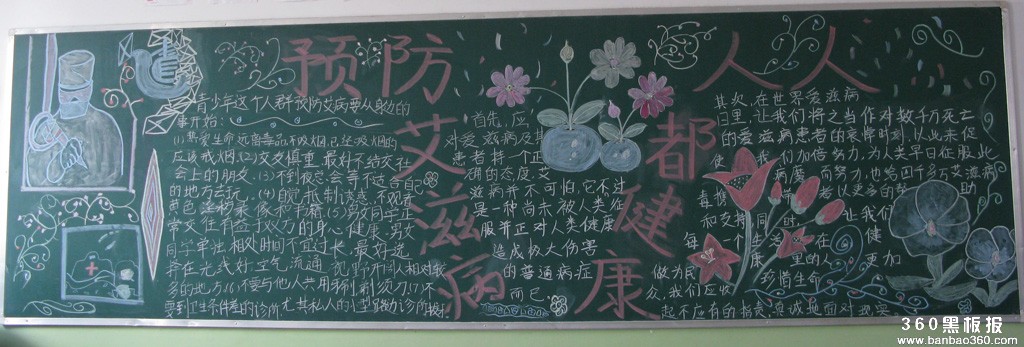 预防
艾滋病
人人
都健康
青少年这个人群预防艾病要从身边的
事开始:
(1)热爱生命远离毒品不吸烟,已经吸烟的
应该戒烟(2)交友慎重,最好不结交社
会上的朋友.(3)不到夜总会等不适合自己
的地方去玩.(4)自觉抵制诱惑,不观看
黄色
像和书籍(5)男女同学正
常交往有益于双方的身心健康,男女
同学单独相处时间不宜过长,最好选
择在光线好空气流通 视野开阔人相对较
多的地方(6)不要与他人共用
剃须刀(7)不
要到卫生条件差的诊所 尤其私人的小型
诊所
首先,应
对爱滋病及其
患者持一个正
确的态度,艾
滋病并不可怕,它不过
是一种尚未被人类征
服并正对人类健康
造成极大伤害
的普通病症
而已.
其次,在世界爱滋病
日里,让我们将之当作对数千万死亡
的爱滋病患者的哀悼时刻,以此来促
使我们加倍努力,为人类早日征服此
病魔而努力,也为四千多万艾滋病
每
者以更多的
助
和支持.同时,让我们
每一个
在健
康里的人更加
做为民
珍惜生命
众,我们应收
起不应有的
真诚地面对现实
360黑板报
www.banbao360.com